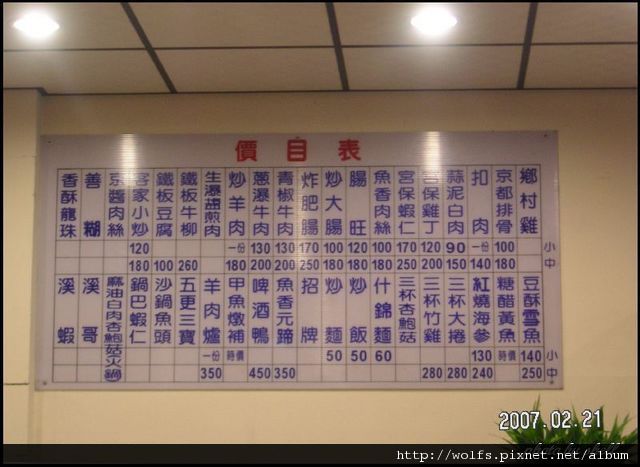 價目表
鄉村雞
京都排骨 100 180
扣肉 一份 140
蒜泥白肉 90 150
宮保雞丁 120 200
宮保蝦仁 170 250
魚香肉絲 100 180
腸旺 120 180
炒大腸 100 180
炸肥腸 170 250
青椒牛肉 130 200
蔥瀑牛肉 130 200
炒羊肉 一份 180
生瀑鹽煎肉
鐵板牛柳 260
鐵板豆腐 100
客家小炒 120 180
京醬肉絲
善糊
香酥龍珠
小
中
豆酥雪魚 140 250
糖醋黃魚 時價
紅燒海參 130 240
三杯大捲 280
三杯竹雞 280
三杯杏鮑菇
什錦麵 60
炒飯 50
炒麵 50
招牌
魚香元蹄 350
啤酒鴨 450
甲魚燉補 時價
羊肉爐 一份 350
五更三寶
沙鍋魚頭
鍋巴蝦仁
麻油白肉杏鮑菇火鍋
溪哥
溪蝦
小
中
2007.02.21
http://wolfs.pixnet.net/album